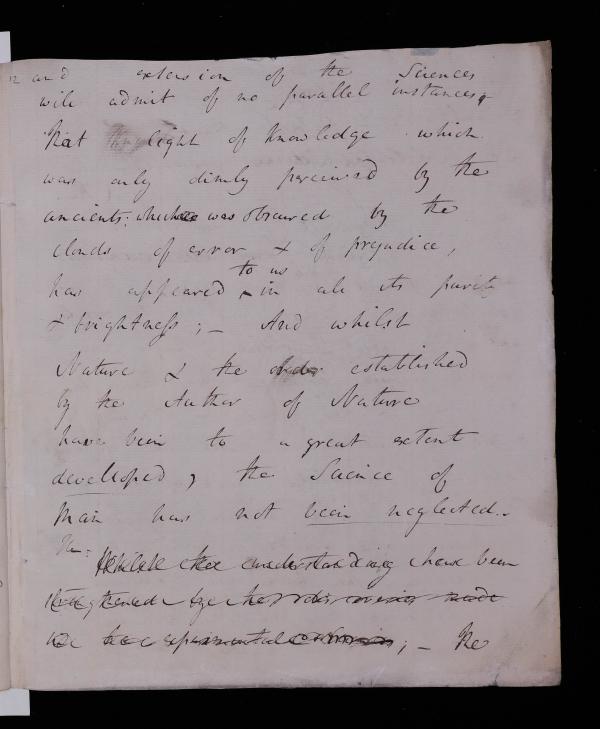 12 and extension of the Sciences
will admit of no parallel instances,
That light of knowledge which
was only dimly perceived by the
ancients; which was obscured by the
clouds of error & of prejudice,
to us
has appeared ^ in all its purity
& brightness; – And whilst
Nature & the order established
by the Author of Nature
have been to a great extent
developed, the Science of
Man has not been neglected. –
the understanding have been
by the discoveries made
experimental; – The